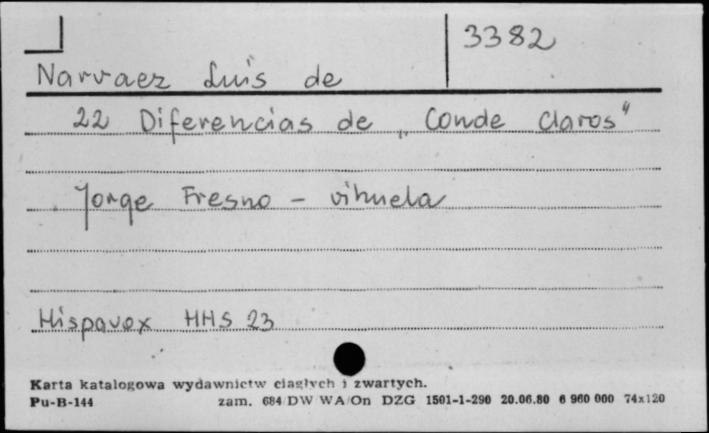 3382
Narvaez Luis de
22 Diferencias de „Conde Claros"
Jorge Fresno - vihuela
Hispavox HHS 23
Karta katalogowa wydawnictw ciągłych i zwartych.
Pu-B-144 zam. 684/DW WA/On DZG 1501-1-290 20.06.80 6 960 000 74x120